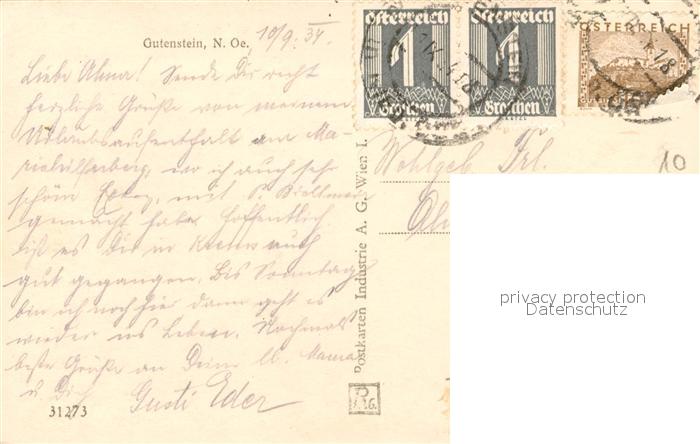 Gutenstein, N. Oe., 10/9. 34.
Liebe Alma! Sende Dir recht
herzliche Grüße von meinem
Urlaubsaufenthalt am Ma-
riahilferberg, wo ich auch sehr
schöne mit
gemacht habe. Hoffentlich
ist es Dir in Krems auch
gut gegangen. Bis Sonntag
bin ich noch hier dann geht es
wieder ins Leben. Nochmals
beste Grüße an Deine lb. Mama
u. Dich Gusti Eder
31273
Postkarten Industrie A. G. Wien I.
Österreich
1
Groschen
Österreich
1
Groschen
ÖSTERREICH
Wohlgeb. Frl.
10
privacy protection
Datenschutz